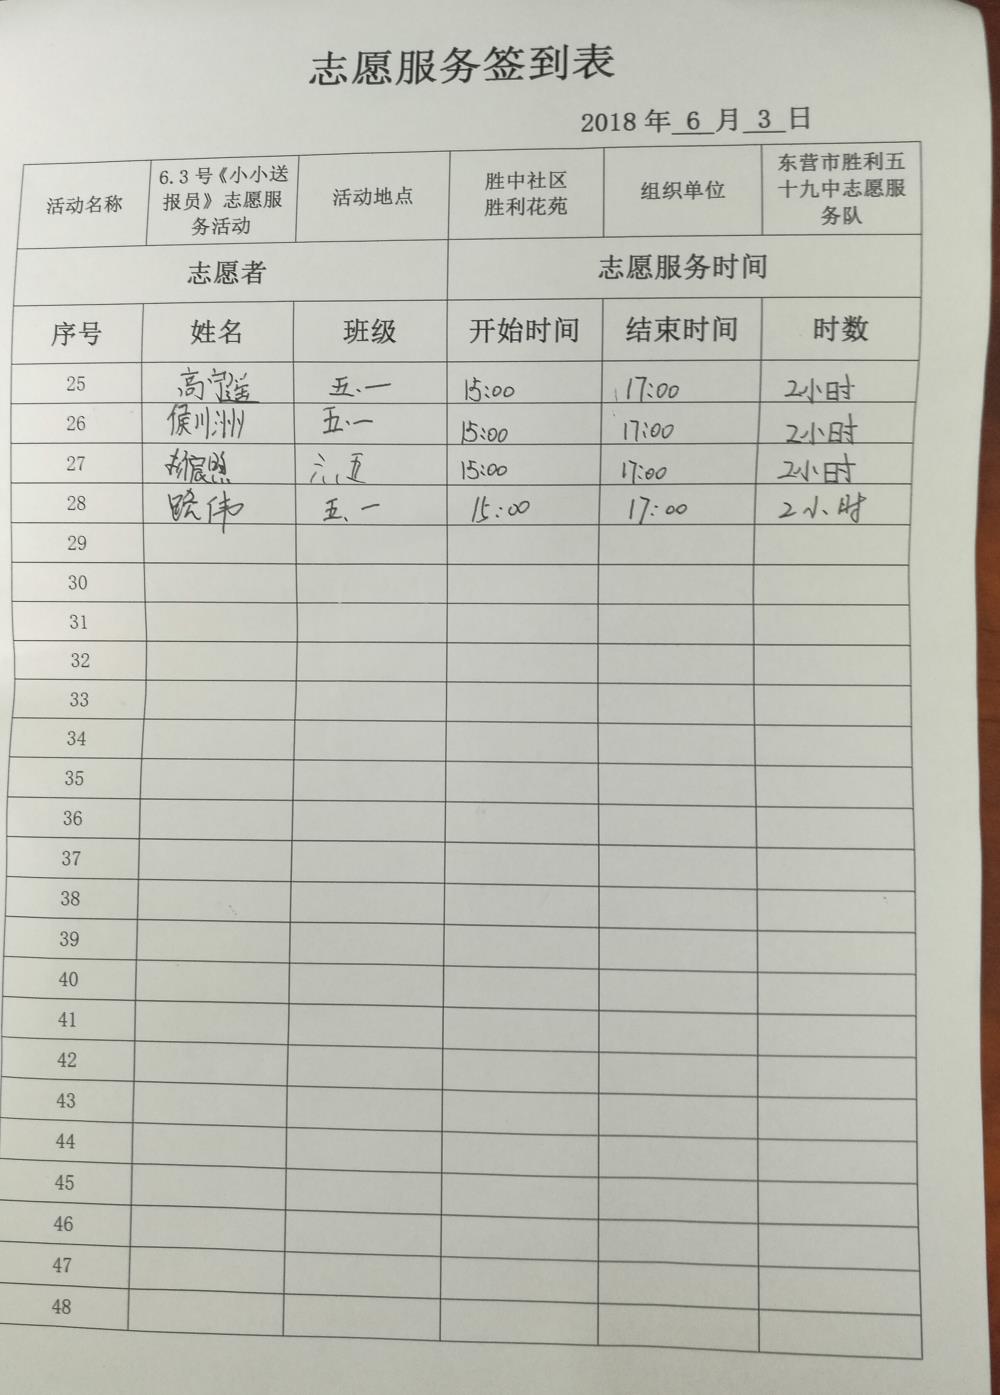 志愿服务签到表
2018 年 6 月 3 日
活动名称 6.3 号《小小送报员》志愿服务活动 活动地点 胜中社区胜利花苑 组织单位 东营市胜利五十九中志愿服务队
志愿者 志愿服务时间
序号 姓名 班级 开始时间 结束时间 时数
25 高守遥 五.一 15:00 17:00 2小时
26 侯川洲 五.一 15:00 17:00 2小时
27 六.五 15:00 17:00 2小时
28 伟 五、一 15:00 17:00 2小时
29
30
31
32
33
34
35
36
37
38
39
40
41
42
43
44
45
46
47
48